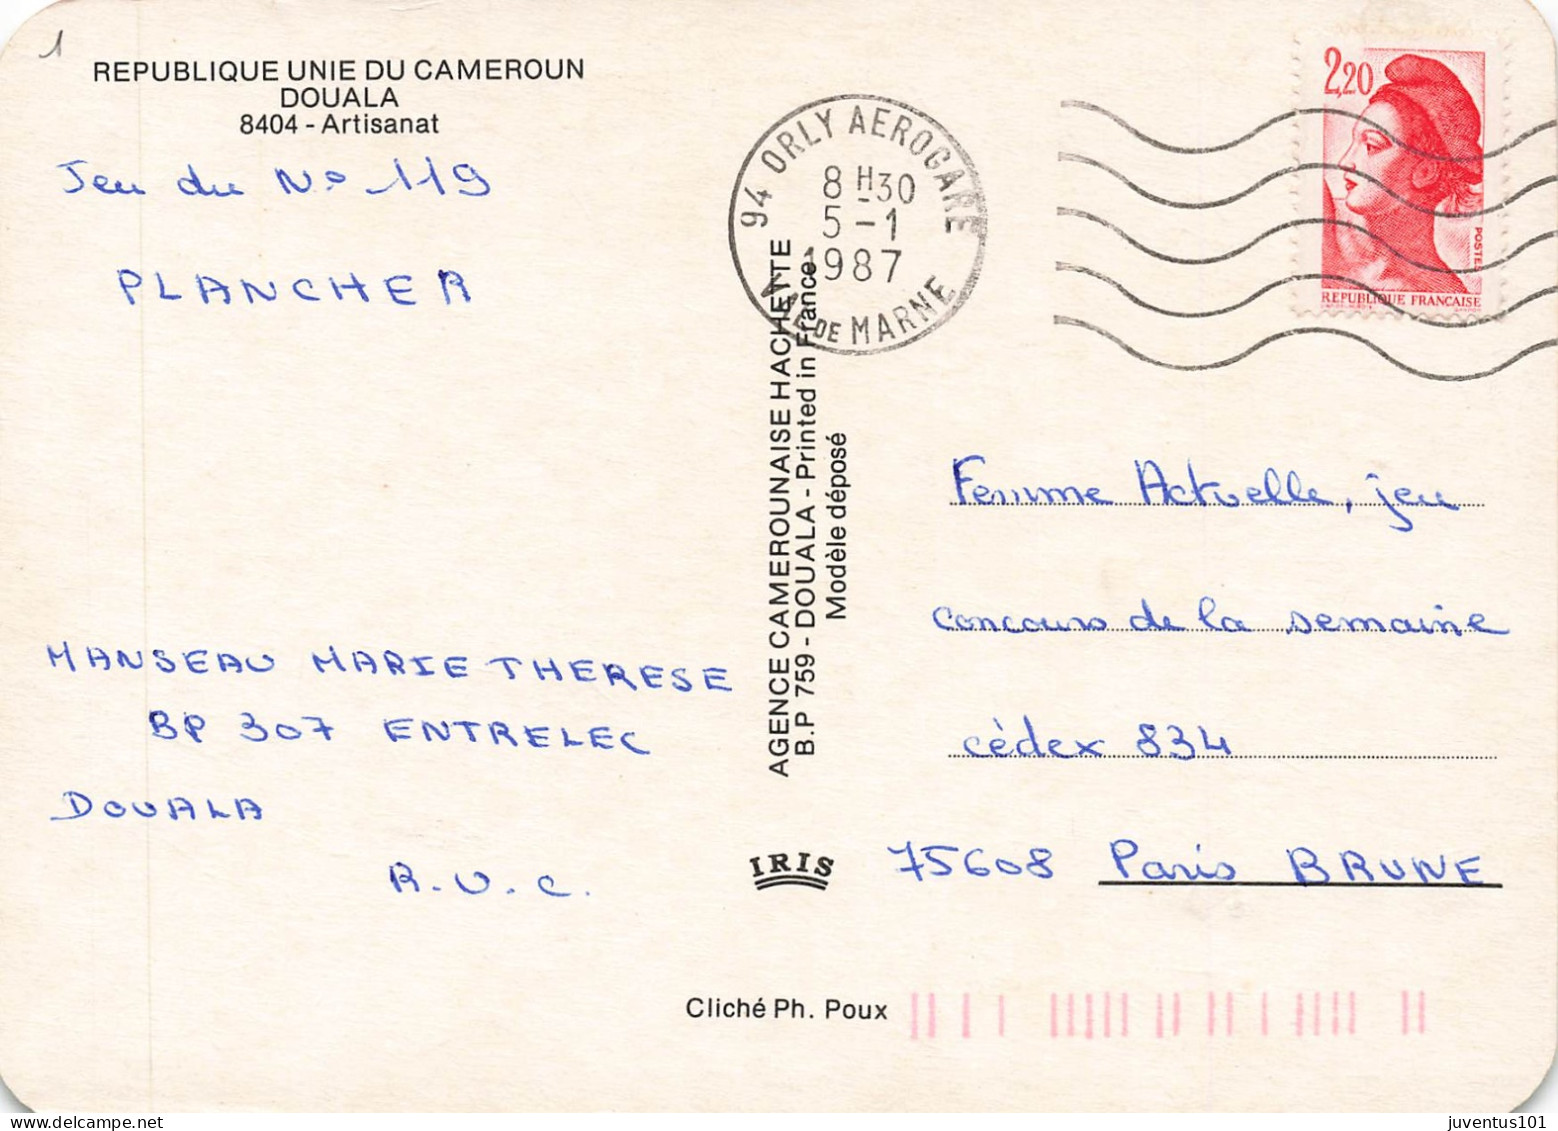 1
REPUBLIQUE UNIE DU CAMEROUN
DOUALA
8404 - Artisanat
Jeu du N° 119
PLANCHER
MANSEAU MARIE THERESE
BP 307 ENTRELEC
DOUALA
R.U.C.
94 ORLY AEROGARE
8 H 30
5 - 1
1987
VAL DE MARNE
AGENCE CAMEROUNAISE HACHETTE
B.P 759 - DOUALA - Printed in France
Modèle déposé
IRIS
Cliché Ph. Poux
2,20
POSTES
REPUBLIQUE FRANÇAISE
Femme Actuelle, jeu
concours de la semaine
cédex 834
75608 Paris BRUNE
juventus101